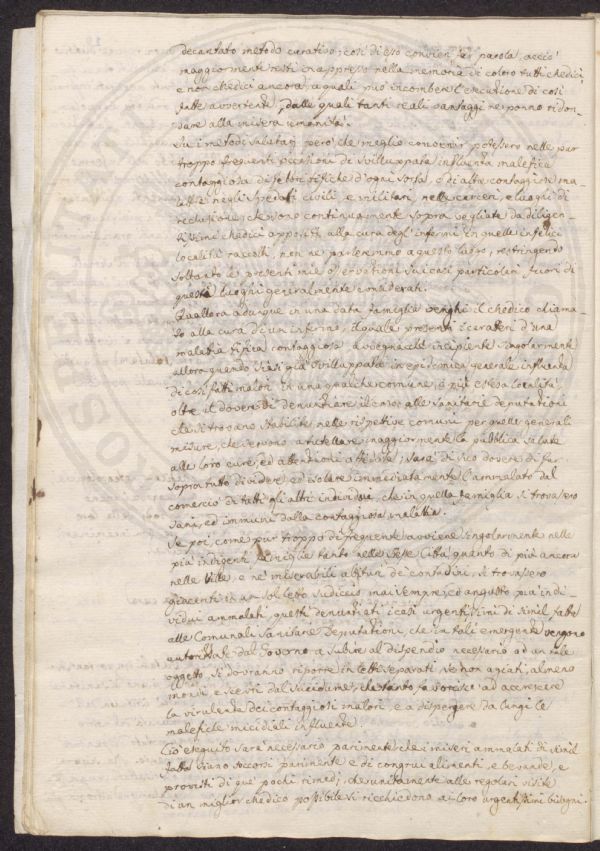 decantato metodo curativo; così di esso convien far parola, acciò
maggiormente resti impresso nella memoria di coloro tutti Medici
e non Medici ancora, a' quali può incombere l'esecuzione di così
fatte avvertenze, dalle quali tanti reali vantaggi ne ponno ridon-
dare alla misera umanità.
Su i metodi salutari però che meglio convenir potessero nelle pur
troppo frequenti occasioni di sviluppata influenza malefica
contagiosa di febri tifiche d'ogni sorta, o di altre contagiose ma-
lattie negli Spedali civili, e militari, nelle carceri, e luoghi di
reclusione, che sono continuamente sopra vegliate da diligen-
tissimi Medici appositi alla cura degl'infermi in quelle infelici
località raccolti, non ne parleremmo a questo luogo, restringendo
soltanto le presenti mie osservazioni su i casi particolari fuori di
questi luoghi generalmente considerati.
Quallora adunque in una data famiglia venghi il Medico chiama-
to alla cura di un infermo, il quale presenti i caratteri d'una
malattia tifica contagiosa, avvegnachè incipiente singolarmente
allora quando siasi già sviluppata in epidemica generale influenza
di così fatti malori in una qualche comune, o più estesa località,
oltre il dovere di denunziare il caso alle sanitarie deputazioni
che si trovano stabilite nelle rispettive comuni per quelle generali
misure, che servono a tutellare maggiormente la pubblica salute
alle loro cure, ed attenzioni affidate; sarà di suo dovere di far
sopra tutto dividere, ed isolare immediatamente l'ammalato dal
comercio di tutti gli altri individui, che in quella famiglia si trovassero
sani, ed immuni dalla contagiosa malattia.
Se poi, come pur troppo di frequente avviene singolarmente nelle
più indigenti famiglie tanto nelle stesse Città, quanto di più ancora
nelle Ville, e ne' miserabili abituri de' contadini, si trovassero
giacenti in un sol letto sudicio mai sempre, ed angusto più indi-
vidui ammalati, questi denunziati i casi urgentissimi di simil fatta
alle Comunali Sanitarie Deputazioni, che in tali emergenze vengono
autorizzate dal Governo a subire al dispendio necessario ad un tale
oggetto, si dovranno riporre in letti separati, se non agiati, almeno
mondi, e scevri dal sucidume, che tanto favorisce ad accrescere
la virulenza dei contaggiosi malori, e a dispergere da lungi le
malefiche micidiali influenze.
Ciò eseguito sarà necessario parimente che i miseri ammalati di simil
fatta siano soccorsi parimente e di congrui alimenti, e bevande, e
provisti di que' pochi rimedj, che unitamente alle regolari visite
di un miglior Medico possibile si ricchiedono ai loro urgentissimi bisogni.